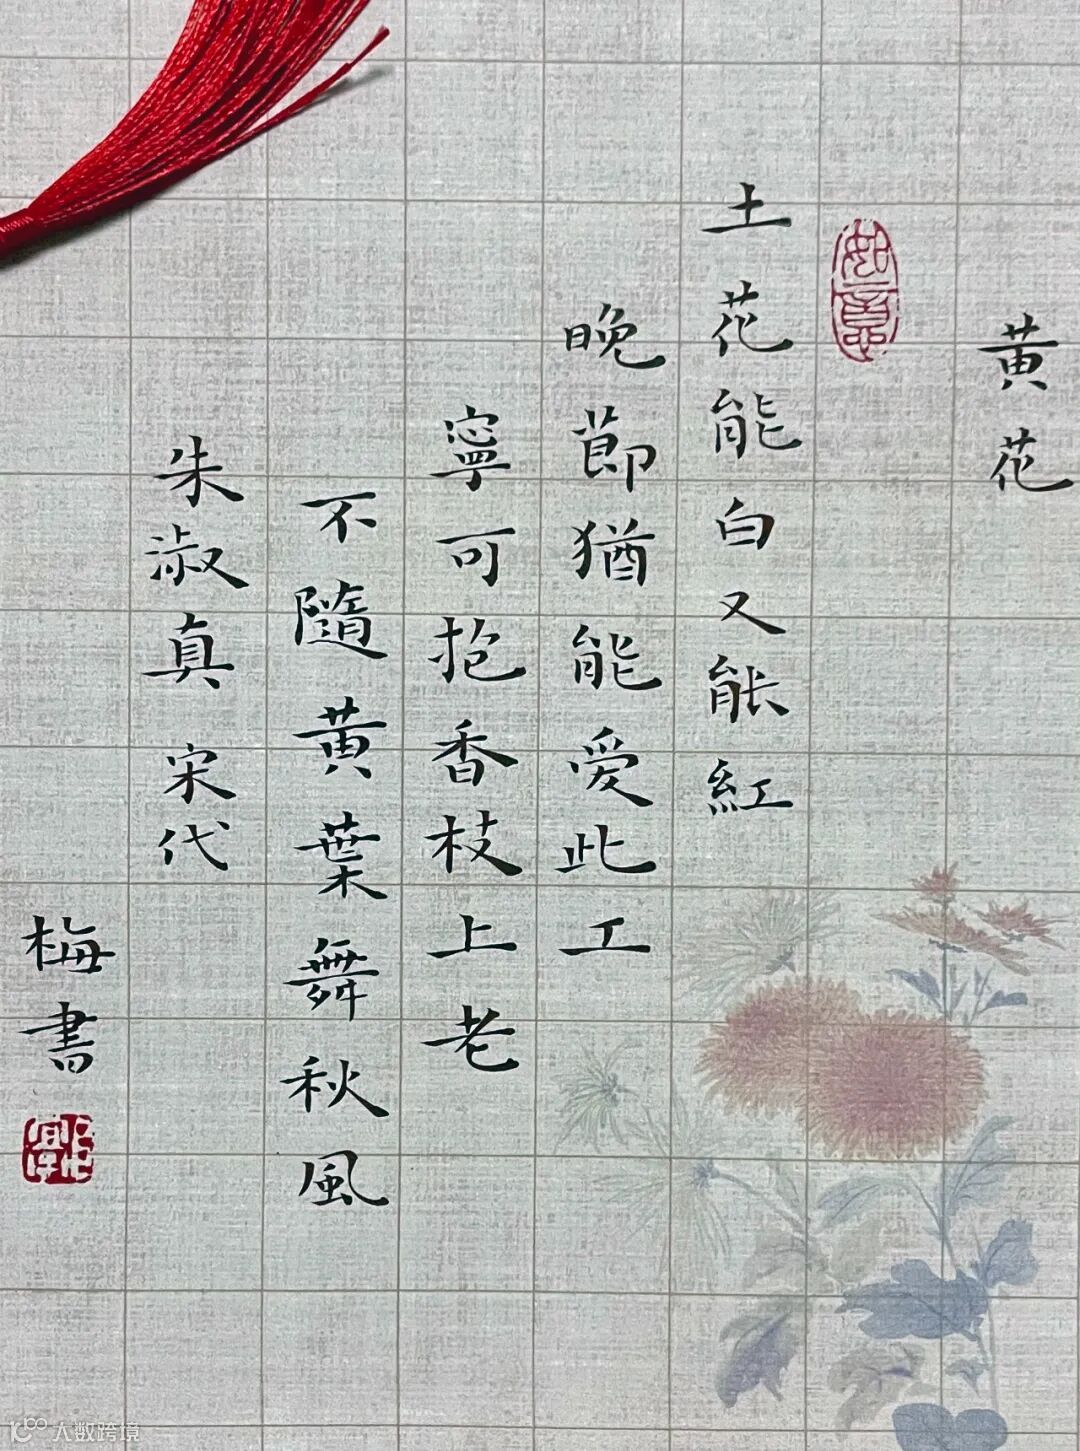 黃花
如意
土花能白又能紅
晚節猶能愛此工
寧可抱香枝上老
不隨黃葉舞秋風
朱淑真 宋代
梅書
大数跨境